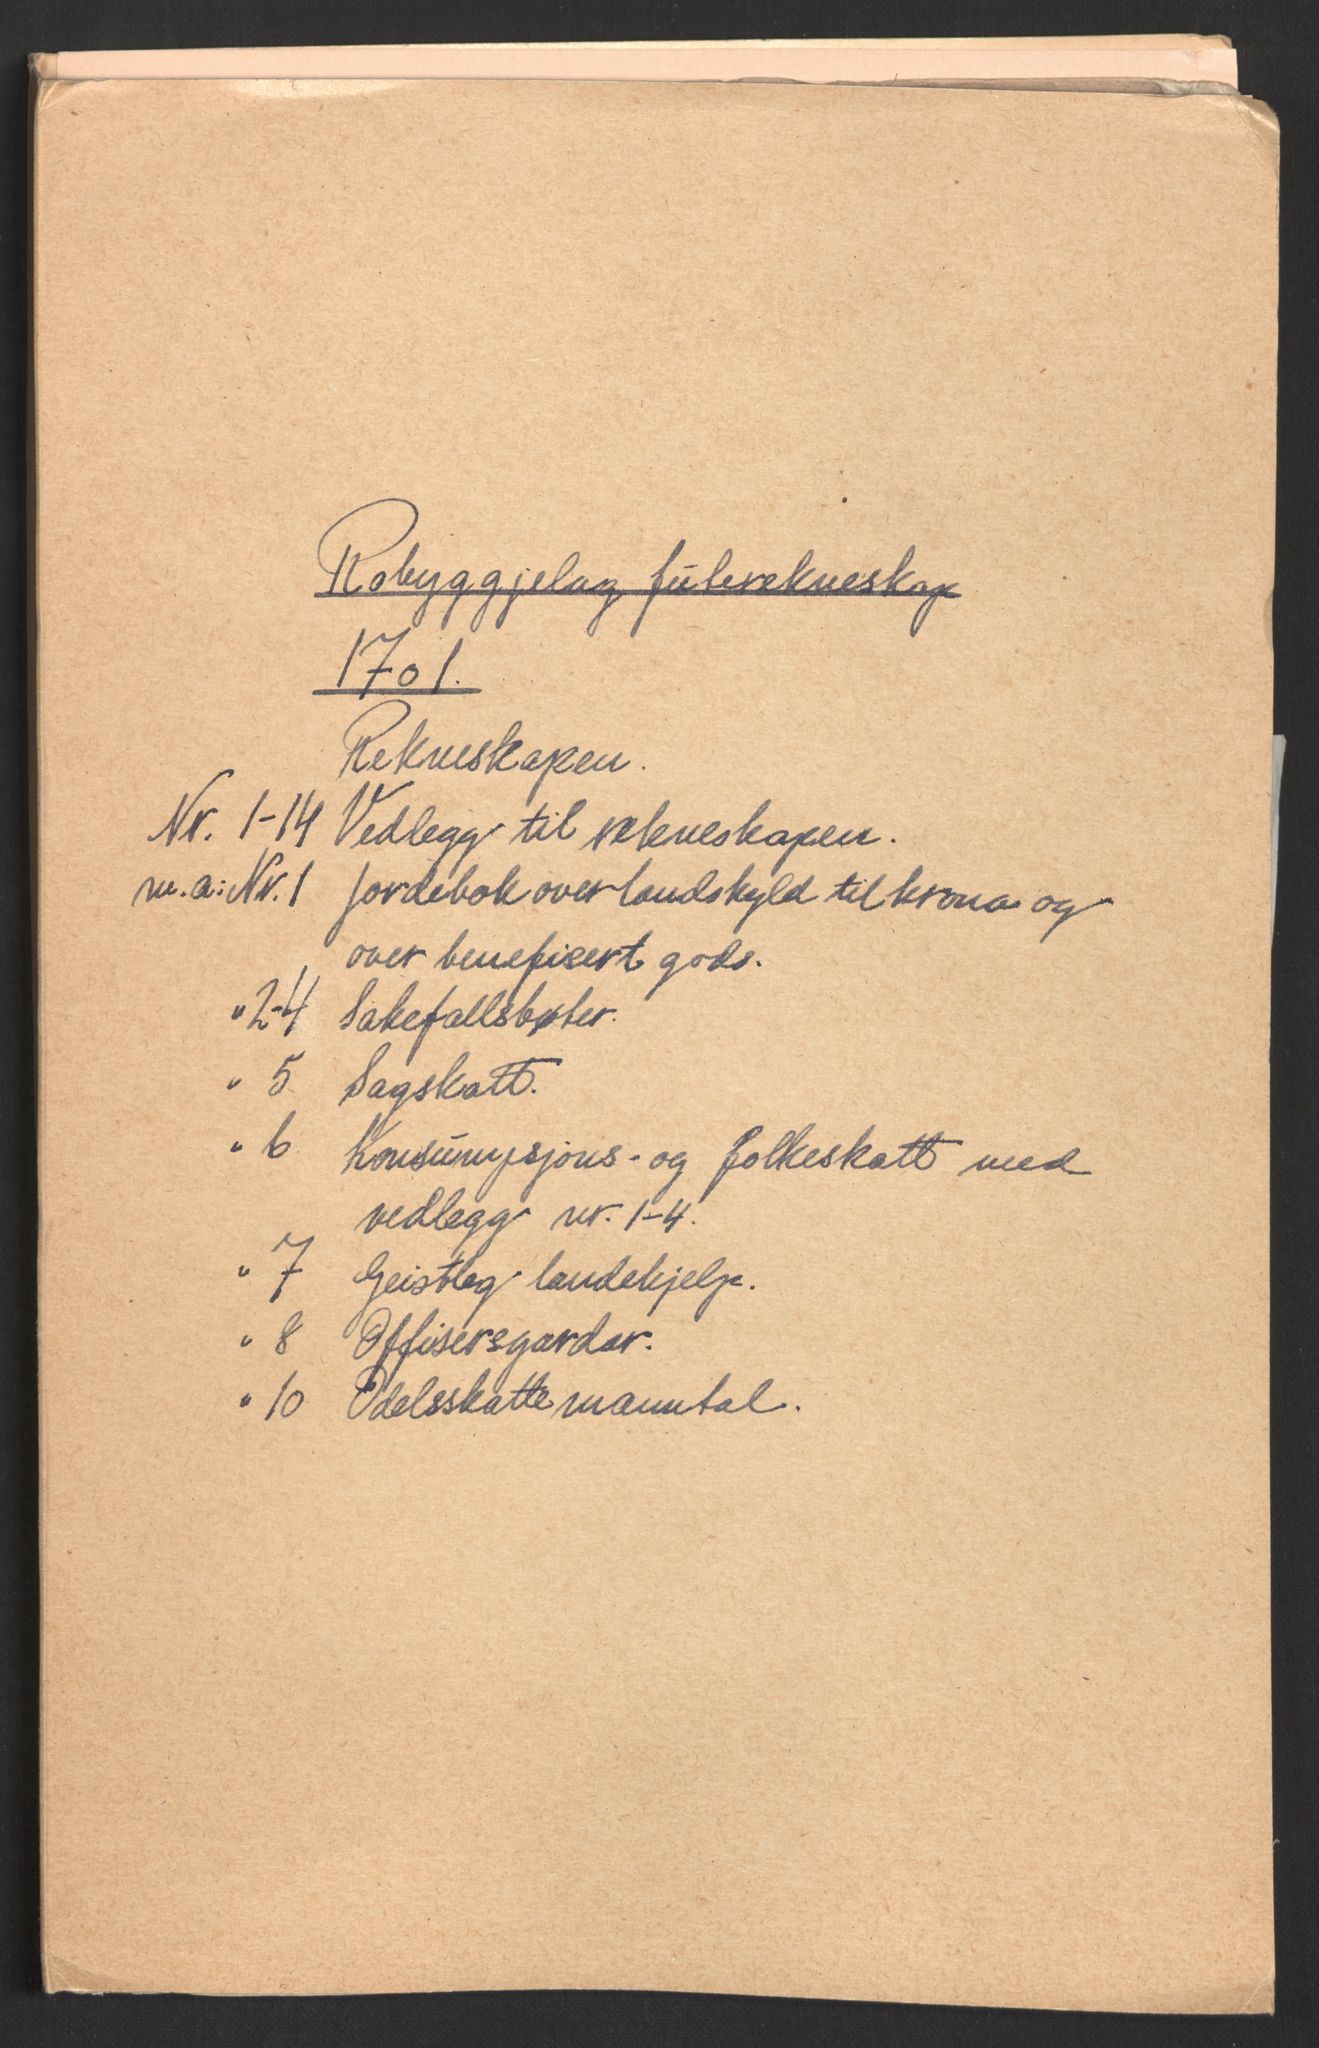 Robyggjelag futerekneskap
1701.
Rekneskapen.
Nr. 1-14 Vedlegg til rekneskapen.
m.a: Nr. 1 Jordebok over landskyld til krona og
over benefisert gods.
" 2-4 Sakefallsbøter.
" 5 Sagskatt.
" 6 Konsumpsjons- og folkeskatt med
vedlegg nr. 1-4.
" 7 Geistleg landehjelp.
" 8 Offisersgardar.
" 10 Odelsskattemanntal.